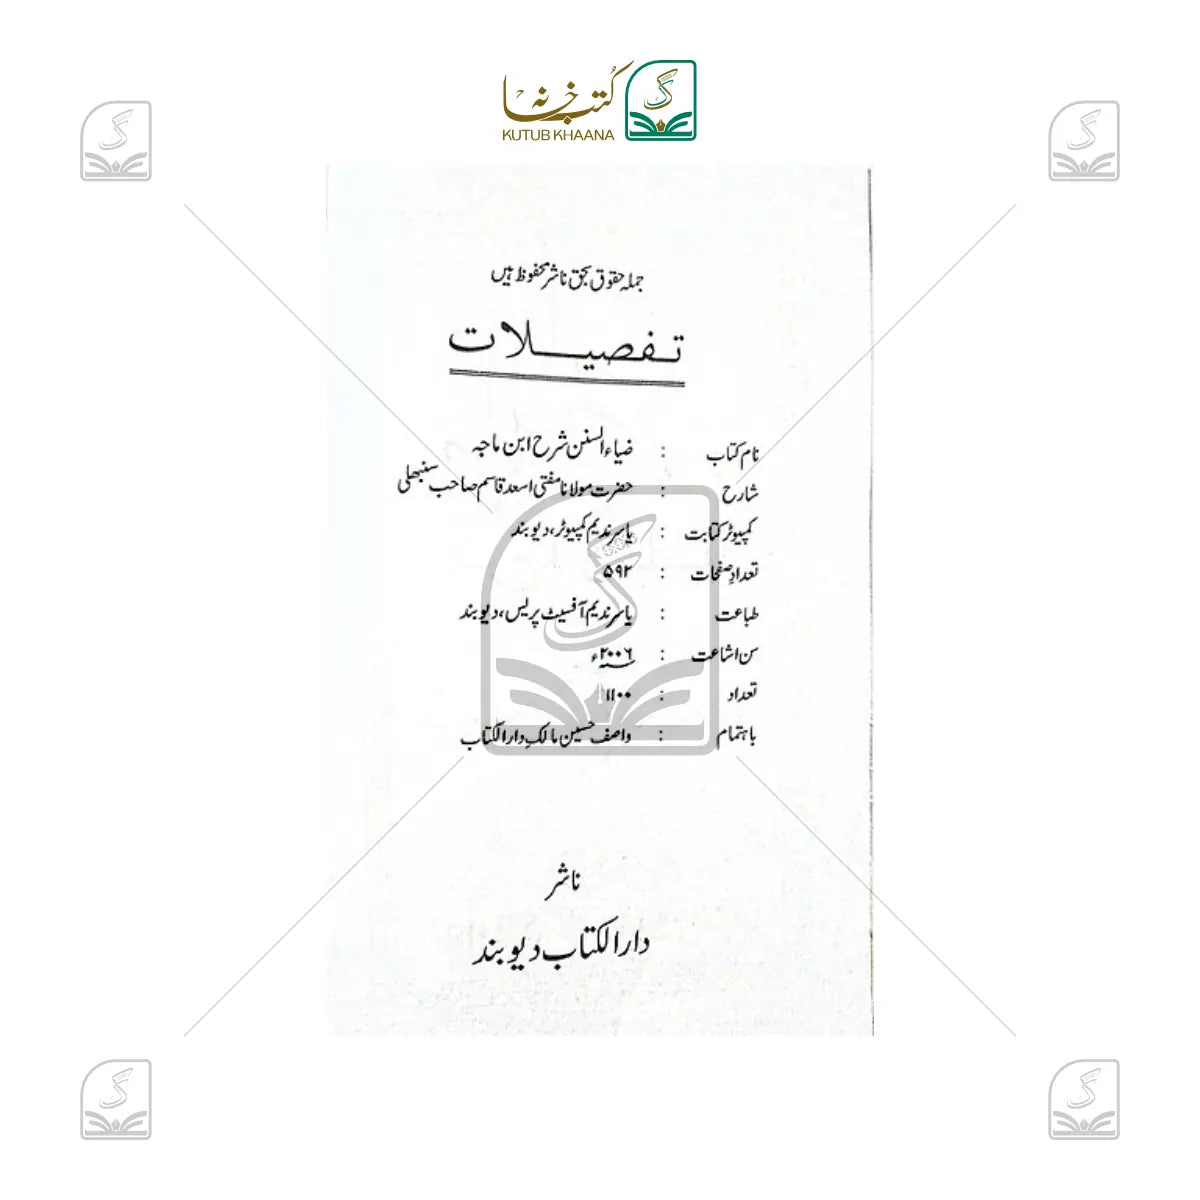 کتب خانہ
KUTUB KHAANA
جملہ حقوق بحق ناشر محفوظ ہیں
تفصیلات
نام کتاب : ضیاء السنن شرح ابن ماجہ
شارح : حضرت مولانا مفتی اسعد قاسم صاحب سنبھلی
کمپیوٹر کتابت : یاسر ندیم کمپیوٹر، دیوبند
تعدادِ صفحات : ۵۹۲
طباعت : یاسر ندیم آفسیٹ پریس، دیوبند
سن اشاعت : ۲۰۰۶ء
تعداد : ۱۱۰۰
باہتمام : واصف حسین مالک دارالکتاب
ناشر
دارالکتاب دیوبند